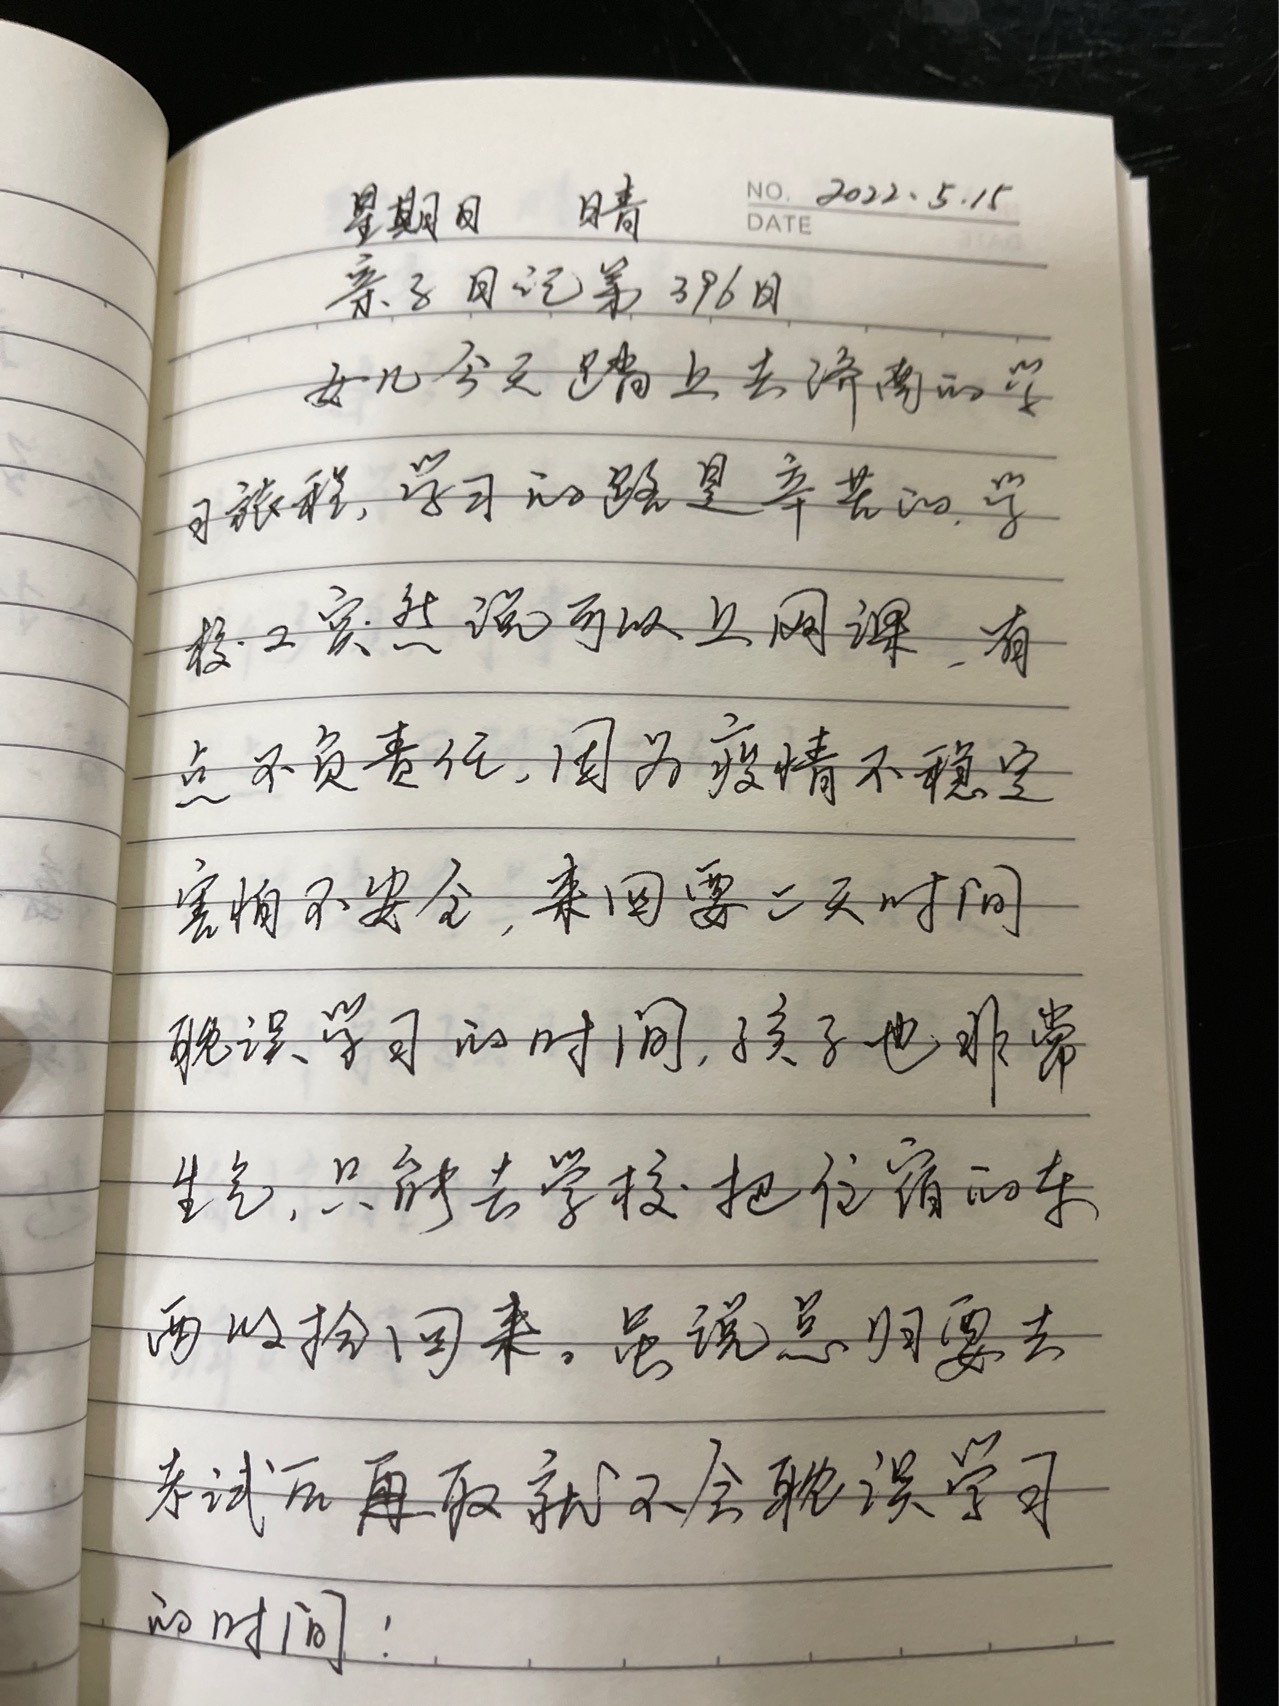 NO. 2022.5.15
DATE
星期日 晴
亲子日记第396日
女儿今天踏上去济南的学
习旅程,学习的路是辛苦的,学
校又突然说可以上网课,有
点不负责任,因为疫情不稳定
害怕不安全,来回要二天时间
耽误学习的时间,孩子也非常
生气,只能去学校把住宿的东
西收拾回来。虽说总归要去
考试后再取就不会耽误学习
的时间!